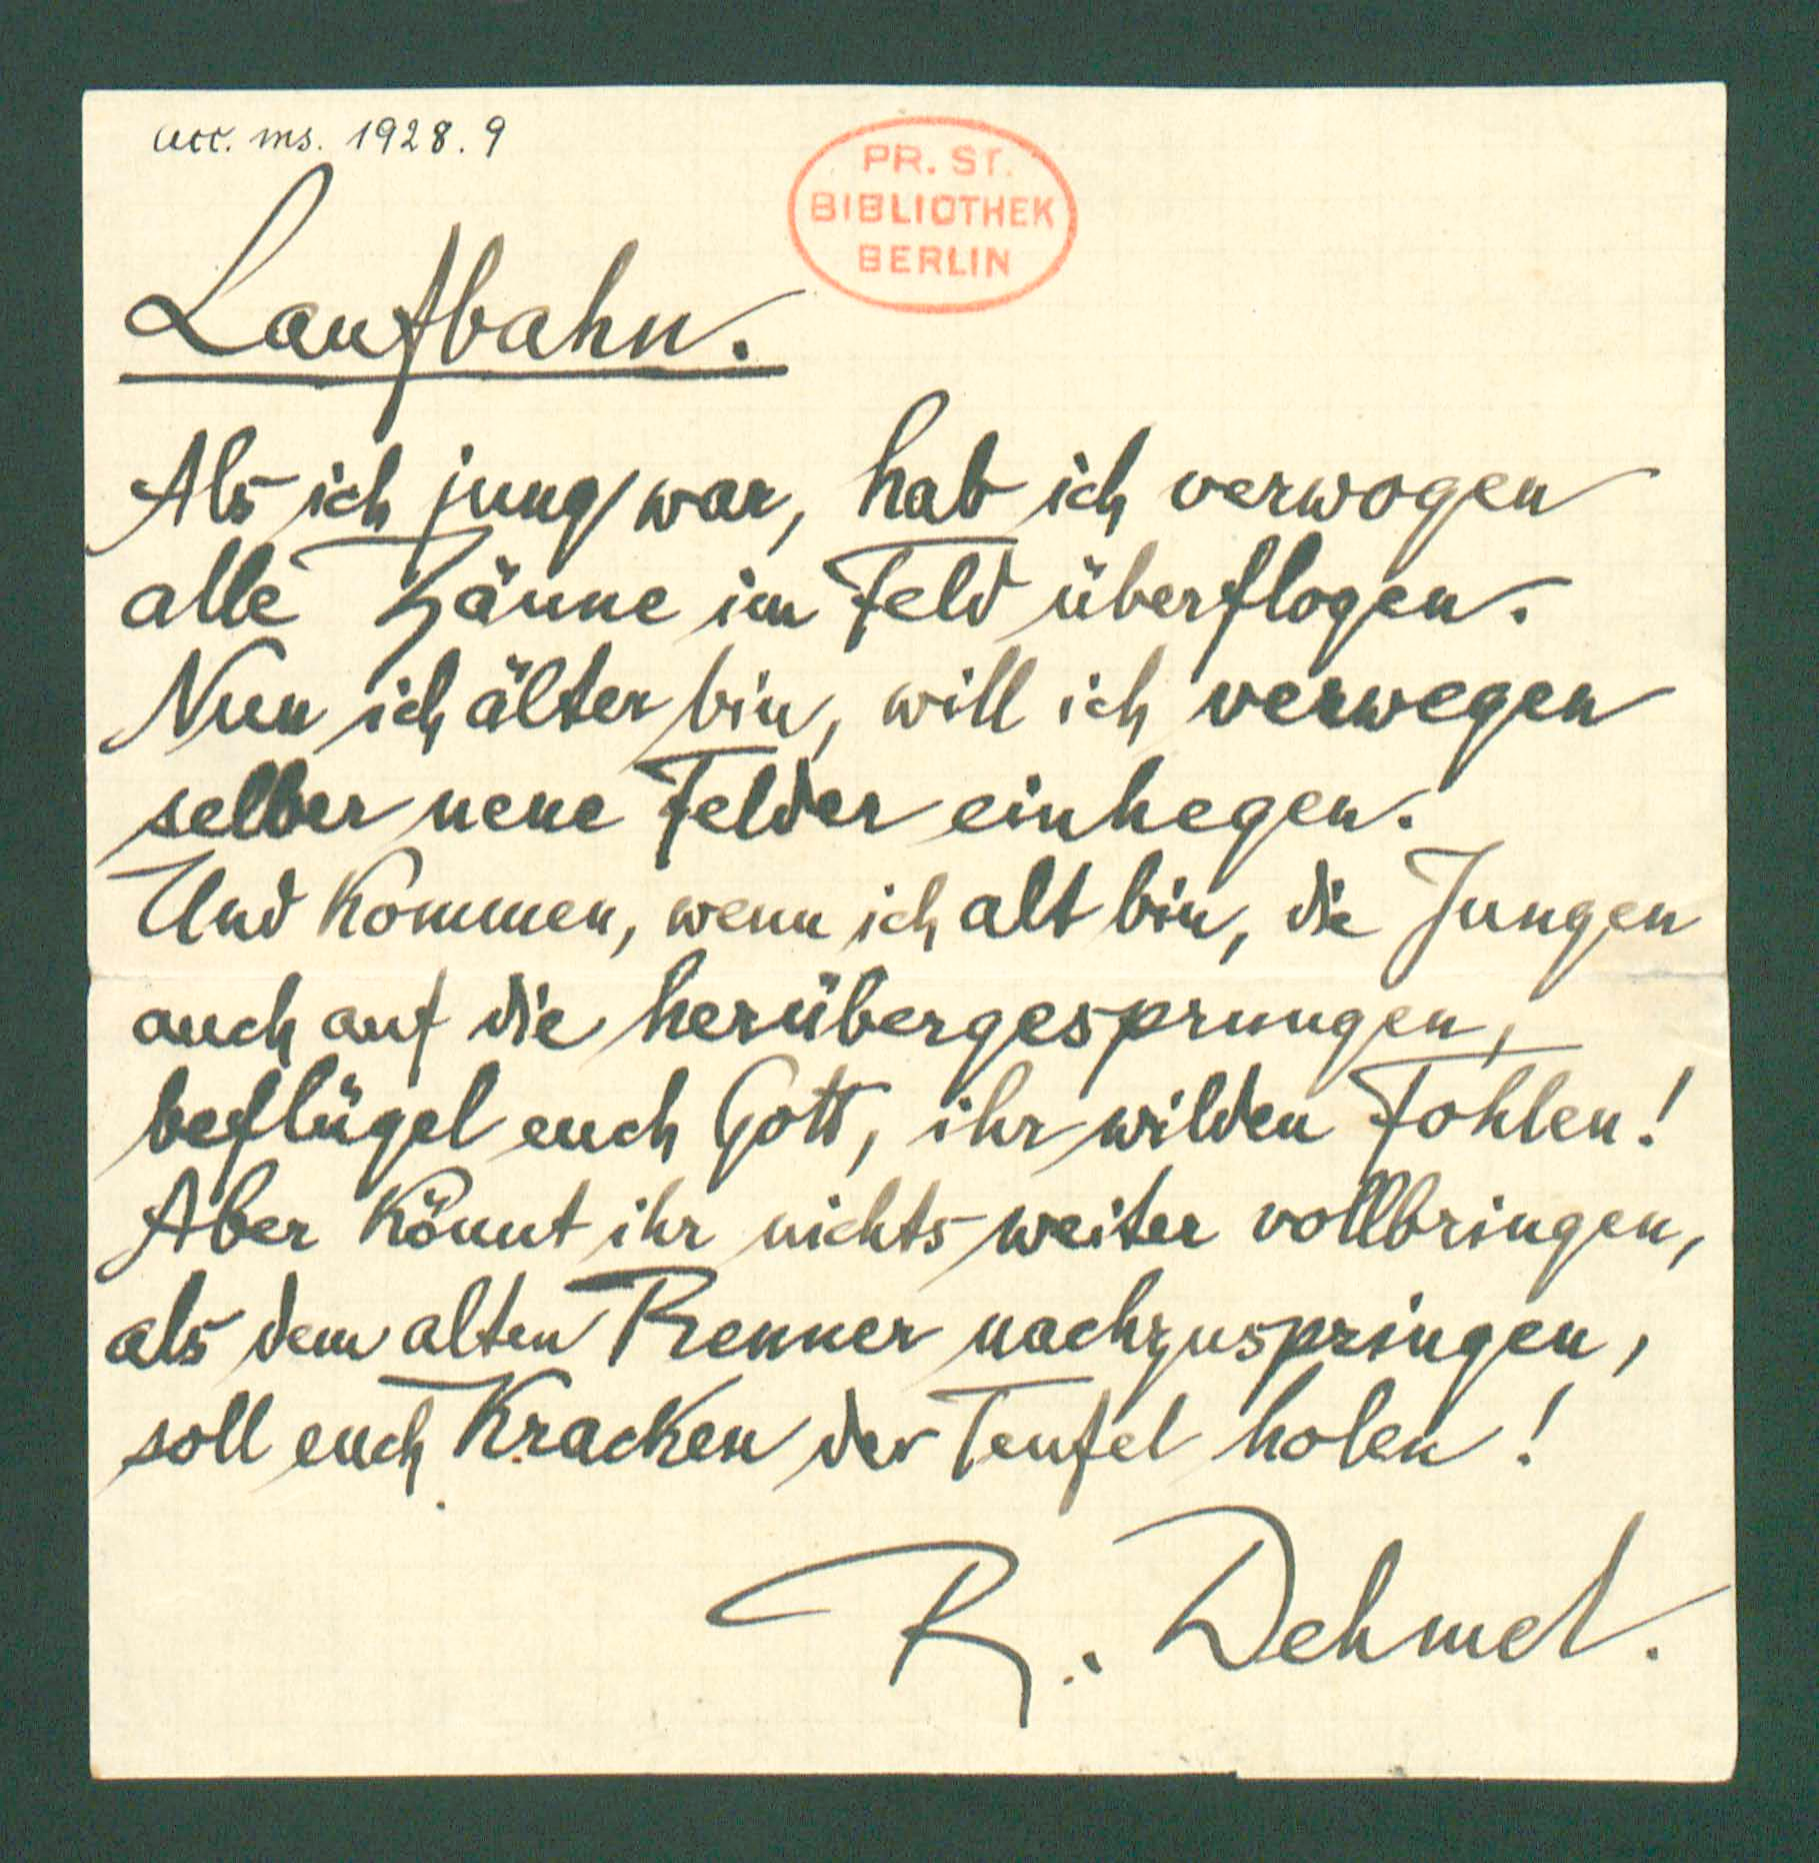 acc. ms. 1928. 9
PR. ST.
BIBLIOTHEK
BERLIN
Laufbahn.
Als ich jung war, hab ich verwogen
alle Zäune im Feld überflogen.
Nun ich älter bin, will ich verwegen
selber neue Felder einhegen.
Und kommen, wenn ich alt bin, die Jungen
auch auf die herübergesprungen,
beflügel euch Gott, ihr wilden Fohlen!
Aber könnt ihr nichts weiter vollbringen,
als dem alten Renner nachzuspringen,
soll euch Kracken der Teufel holen!
R. Dehmel.